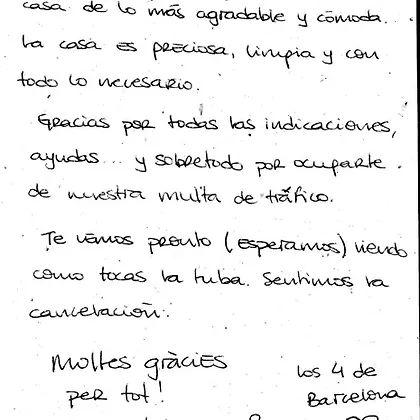 casa de lo más agradable y cómoda...
La casa es preciosa, limpia y con
todo lo necesario.
Gracias por todas las indicaciones,
ayudas... y sobretodo por ocuparte
de nuestra multa de tráfico.
Te vemos pronto (esperamos) viendo
como tocas la tuba. Sentimos la
cancelación.
Moltes gràcies
per tot!
los 4 de
Barcelona